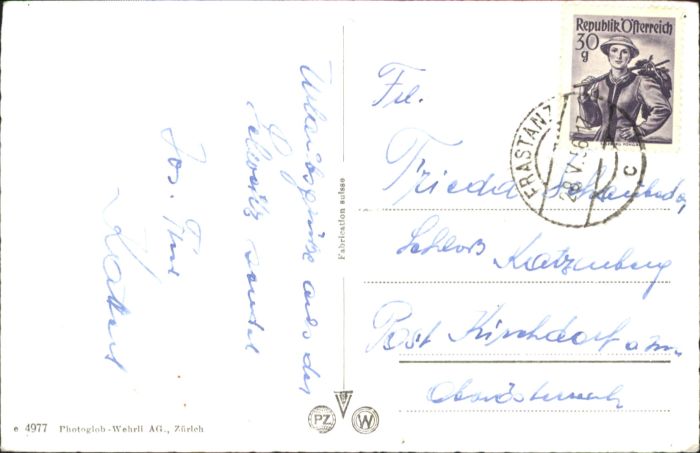 Urlaubsgrüße aus der
Schweiz sendet
Jos.
Republik Österreich
30
g
FRASTANZ
28.V.56
c
Frl.
Frieda
Schloß Katzenberg
Post Kirchdorf a/Inn
Oberösterreich
Fabrication suisse
PZ
W
e 4977 Photoglob-Wehrli AG., Zürich